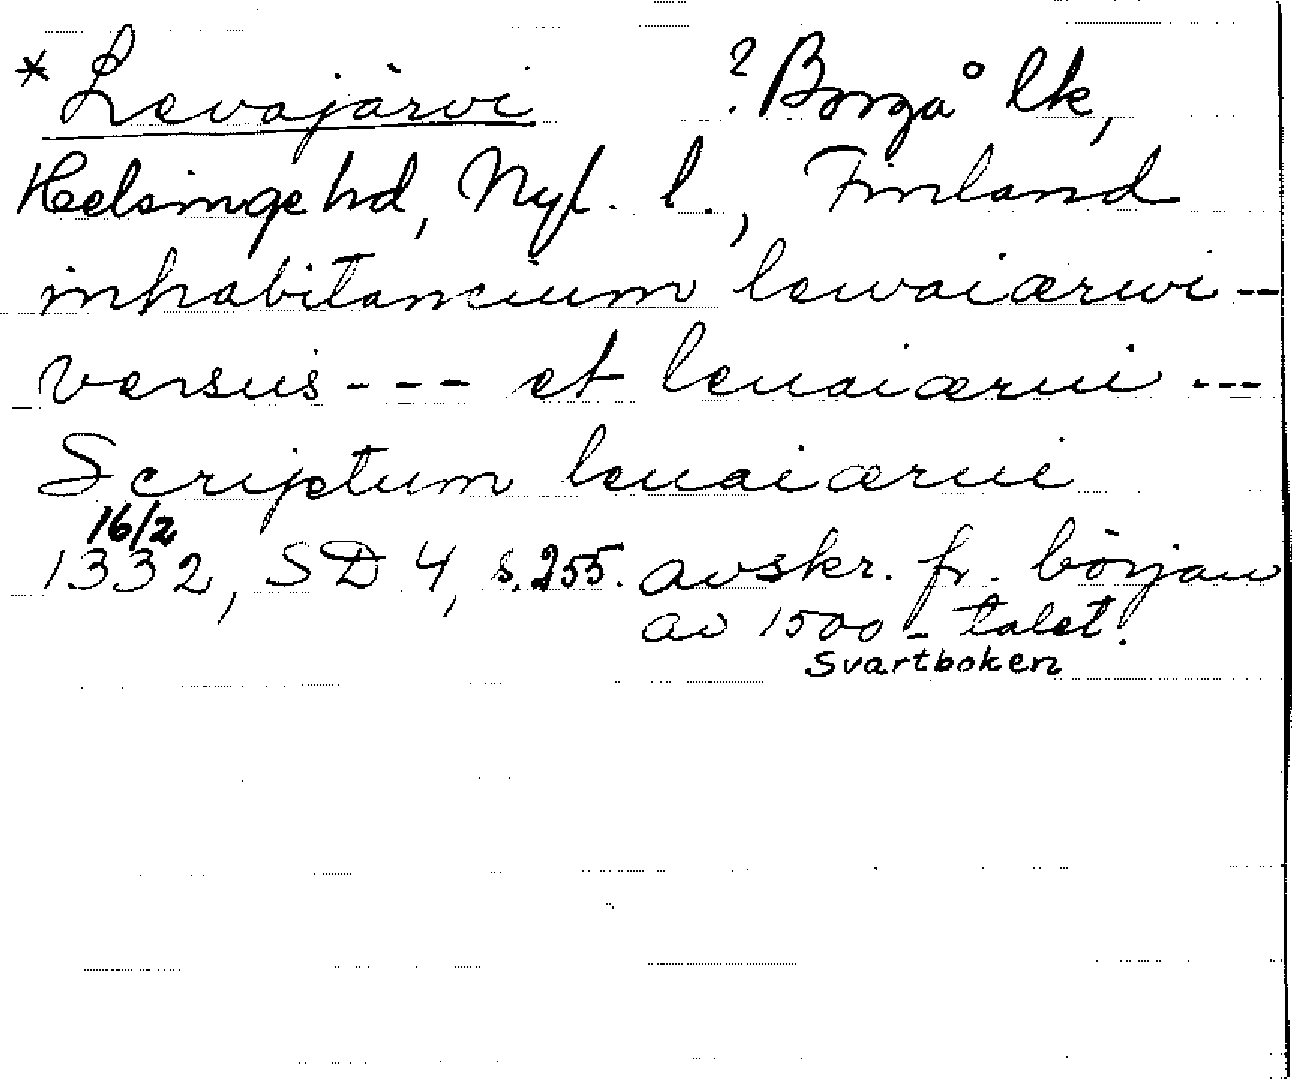 * Levajärvi ? Borgå lk,
Helsinge hd, Nyl. l., Finland
inhabitancium lewaiærwi --
versus --- et leuaiærui ---
Scriptum leuaiærui
16/2
1332, SD 4, s. 255. avskr. fr. början
av 1500-talet.
Svartboken